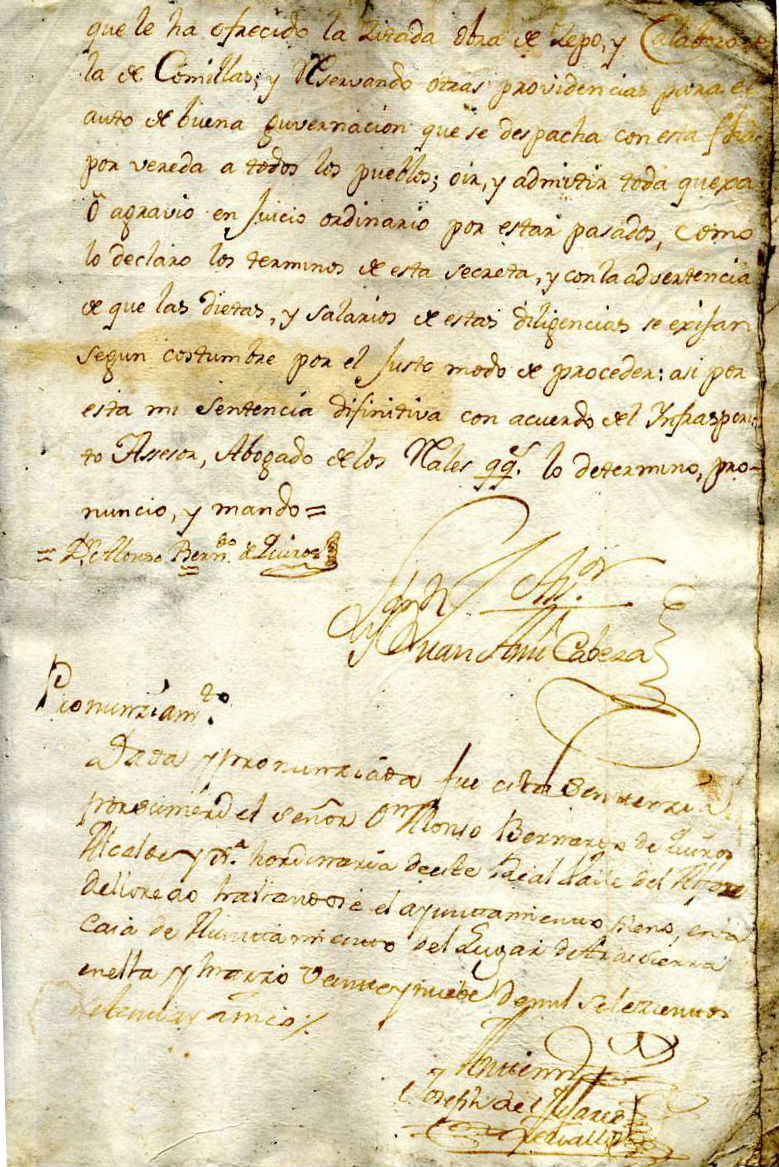 que le ha ofrecido la Zitada obra de Zepo, y Calabozo
la de Comillas; y Reservando otras providencias para el
auto de buena guvernacion que se despacha con esta
por vereda a todos los pueblos; oir, y admitir toda quexa
ô agravio en Juicio ordinario por estar pasados, como
lo declaro los terminos de esta secreta, y con la advertencia
de que las dietas, y salarios de estas diligencias se exijan
segun costumbre por el Justo modo de proceder: asi por
esta mi Sentencia difinitiva con acuerdo del Infraspcri-
to Assesor, Abogado de los Rales qqs. lo determino, pro-
nuncio, y mando=
= Dn. Alonso Berndo. de Quiros
Juan Cabeza
Pronunziamto.
Dada y pronunziada fue esta Sentenzia
por su merd el Señor Dn Alonso Bernardo de Quiros
Alcalde y Jª. hordinaria de este Real Valle del Alfoz
de lloredo hallandose el ayuntamiento pleno, en la
Casa de Aiuntamiento del Lugar de
en el a y marzo veinte y nuebe de mil setezientos
setenta y zinco
Antemi
Joseph del